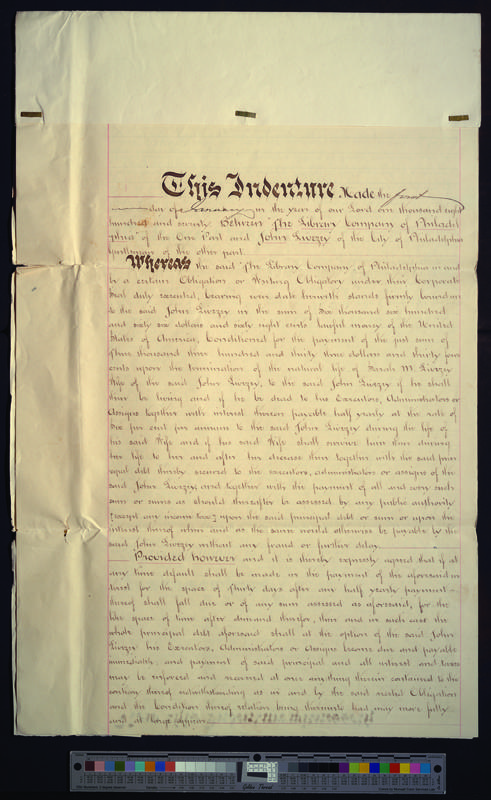 This Indenture Made the first
day of January in the year of our Lord one thousand eight
hundred and seventy Between "The Library Company of Philadel
phia" of the One Part and John Livezey of the City of Philadelphia
Gentleman of the other part.
Whereas the said "The Library Company of Philadelphia in and
by a certain Obligation or Writing Obligatory under their Corporate
Seal duly executed, bearing even date herewith stands firmly bound un
to the said John Livezey in the sum of Six thousand six hundred
and sixty six dollars and sixty eight cents lawful money of the United
States of America, Conditioned for the payment of the just sum of
Three thousand three hundred and thirty three dollars and thirty four
cents upon the termination of the natural life of Sarah M. Livezey
Wife of the said John Livezey, to the said John Livezey if he shall
then be living and if he be dead to his Executors, Administrators or
Assigns together with interest thereon payable half yearly at the rate of
Six per cent per annum to the said John Livezey during the life of
his said Wife and if his said Wife shall survive him then during
her life to her and after her decease then together with the said prin
cipal debt thereby secured to the executors, administrators or assigns of the
said John Livezey, and together with the payment of all and every such
sum or sums as should thereafter be assessed by any public authority
(except any income tax) upon the said principal debt or sum or upon the
interest thereof when and as the same would otherwise be payable by the
said John Livezey without any fraud or further delay.
Provided however and it is thereby expressly agreed that if at
any time default shall be made in the payment of the aforesaid in
terest for the space of thirty days after any half yearly payment
thereof shall fall due or of any sum assessed as aforesaid, for the
like space of time after demand therefor, then and in such case the
whole principal debt aforesaid shall at the option of the said John
Livezey his Executors, Administrators or Assigns become due and payable
immediately and payment of said principal and all interest and taxes
may be enforced and recovered at once anything therein contained to the
contrary thereof notwithstanding as in and by the said recited Obligation
and the Condition thereof relation being thereunto had may more fully
and at large appear